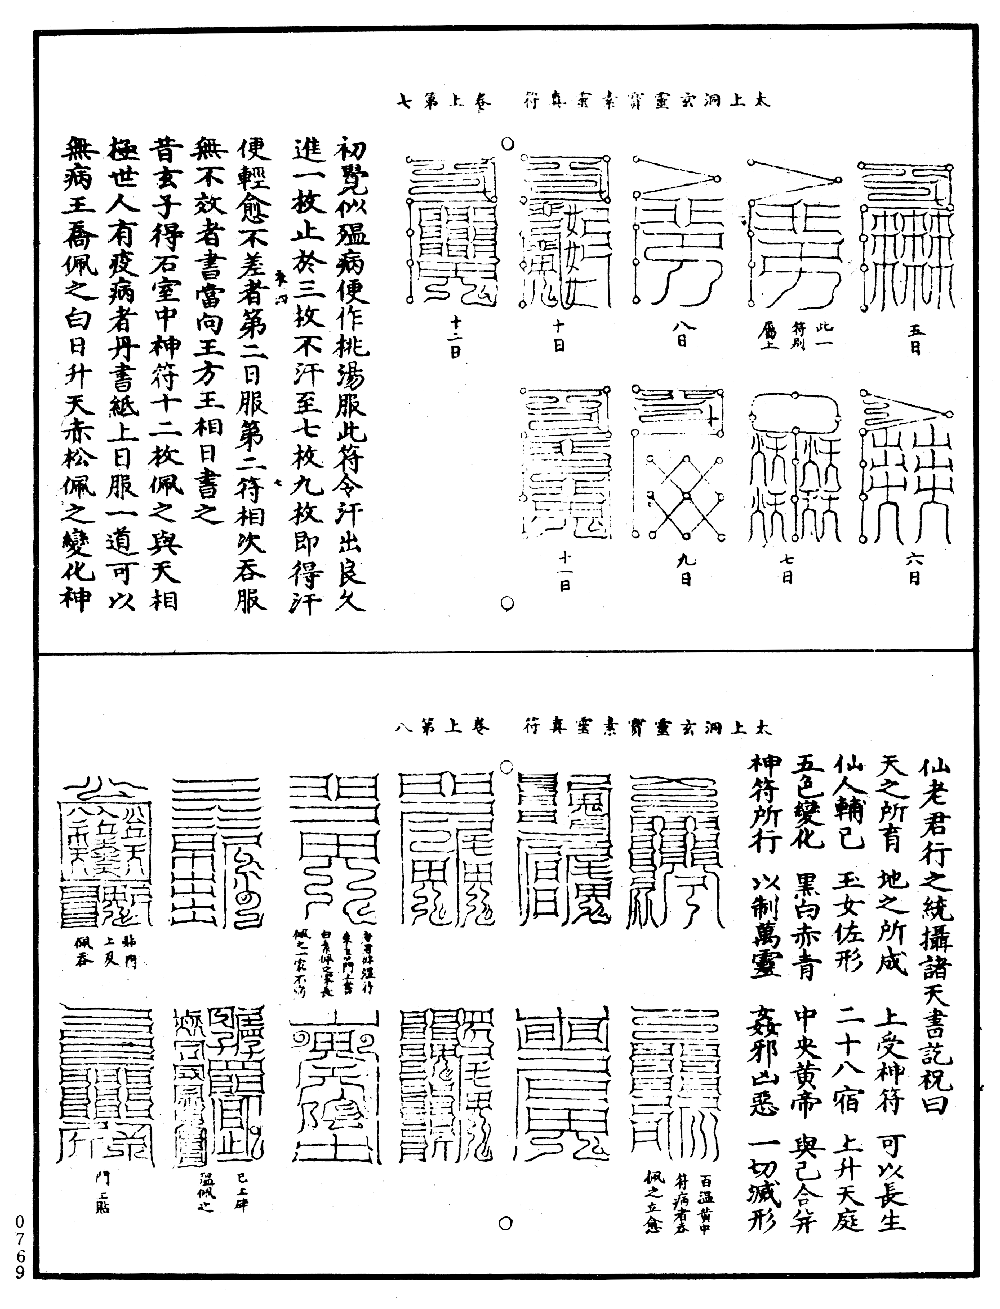 太上洞玄靈寶素靈真符　卷上第七
五日
六日
此一符別屬上
七日
八日
九日
十日
十一日
十二日
初覺似瘟病便作桃湯服此符令汗出良久
進一枚止於三枚不汗至七枚九枚即得汗
便輕愈不差者第二日服第二符相次吞服
無不效者書當向王方王相日書之
昔玄子得石室中神符十二枚佩之與天相
極世人有疫病者丹書紙上日服一道可以
無病王喬佩之白日升天赤松佩之變化神
太上洞玄靈寶素靈真符　卷上第八
仙老君行之統攝諸天書訖祝曰
天之所育　地之所成　上受神符　可以長生
仙人輔己　玉女佐形　二十八宿　上升天庭
五色變化　黑白赤青　中央黃帝　與己合并
神符所行　以制萬靈　姦邪凶惡　一切滅形
百溫黃中
符病者吞
佩之立愈
佩之一家不病
已上辟
溫佩之
貼門
上及
佩吞
門上貼
0769